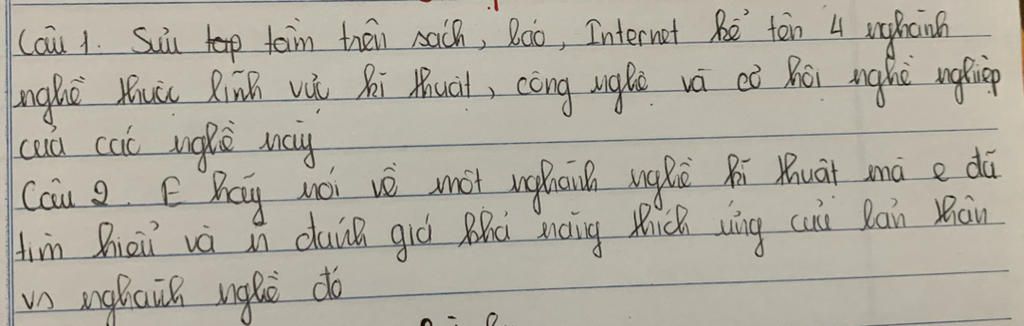 Câu 1. Sưu tập tầm trên sách, báo, Internet kể tên 4 nghành
nghề thuộc lĩnh vức kĩ thuật, công nghệ và cơ hội nghề nghiệp
của các nghề này
Câu 2. E hãy nói về một nghành nghề kĩ thuật mà e đã
tìm hiểu và đánh giá khả năng thích ứng của bản thân
vs nghành nghề đó